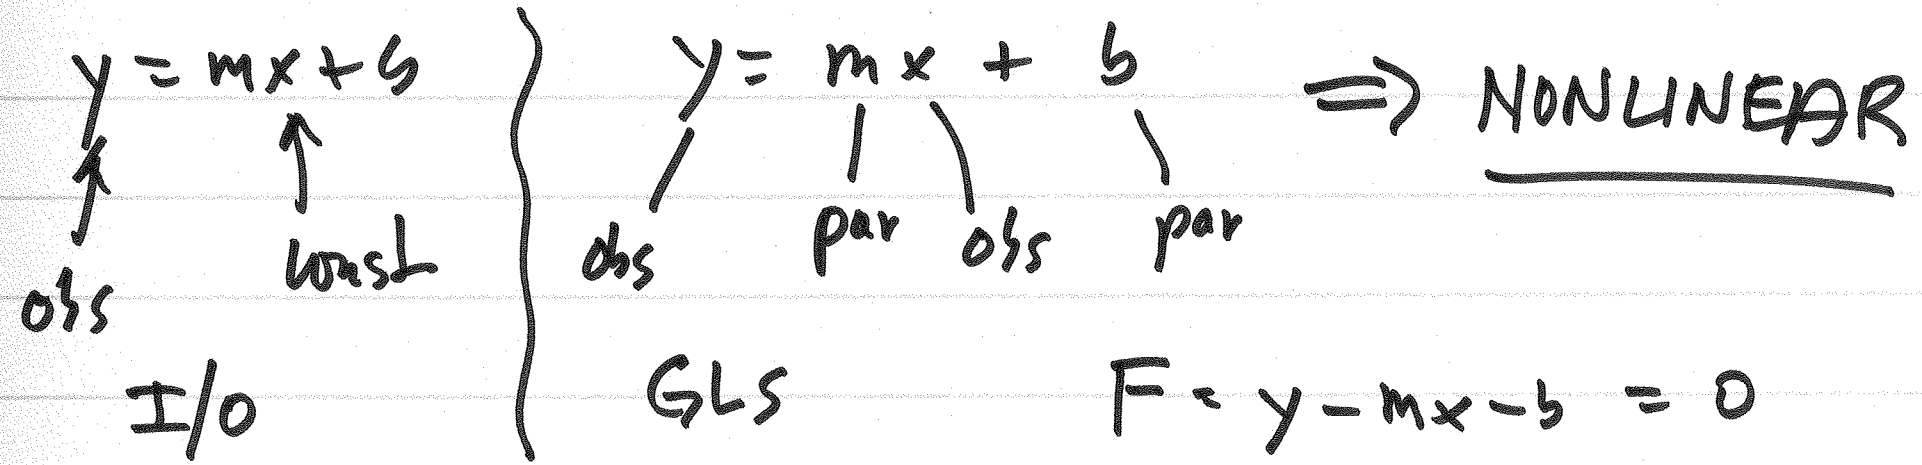 y = mx + b
obs
const
I/O
y = mx + b ⇒ NONLINEAR
obs par obs par
GLS F = y - mx - b = 0